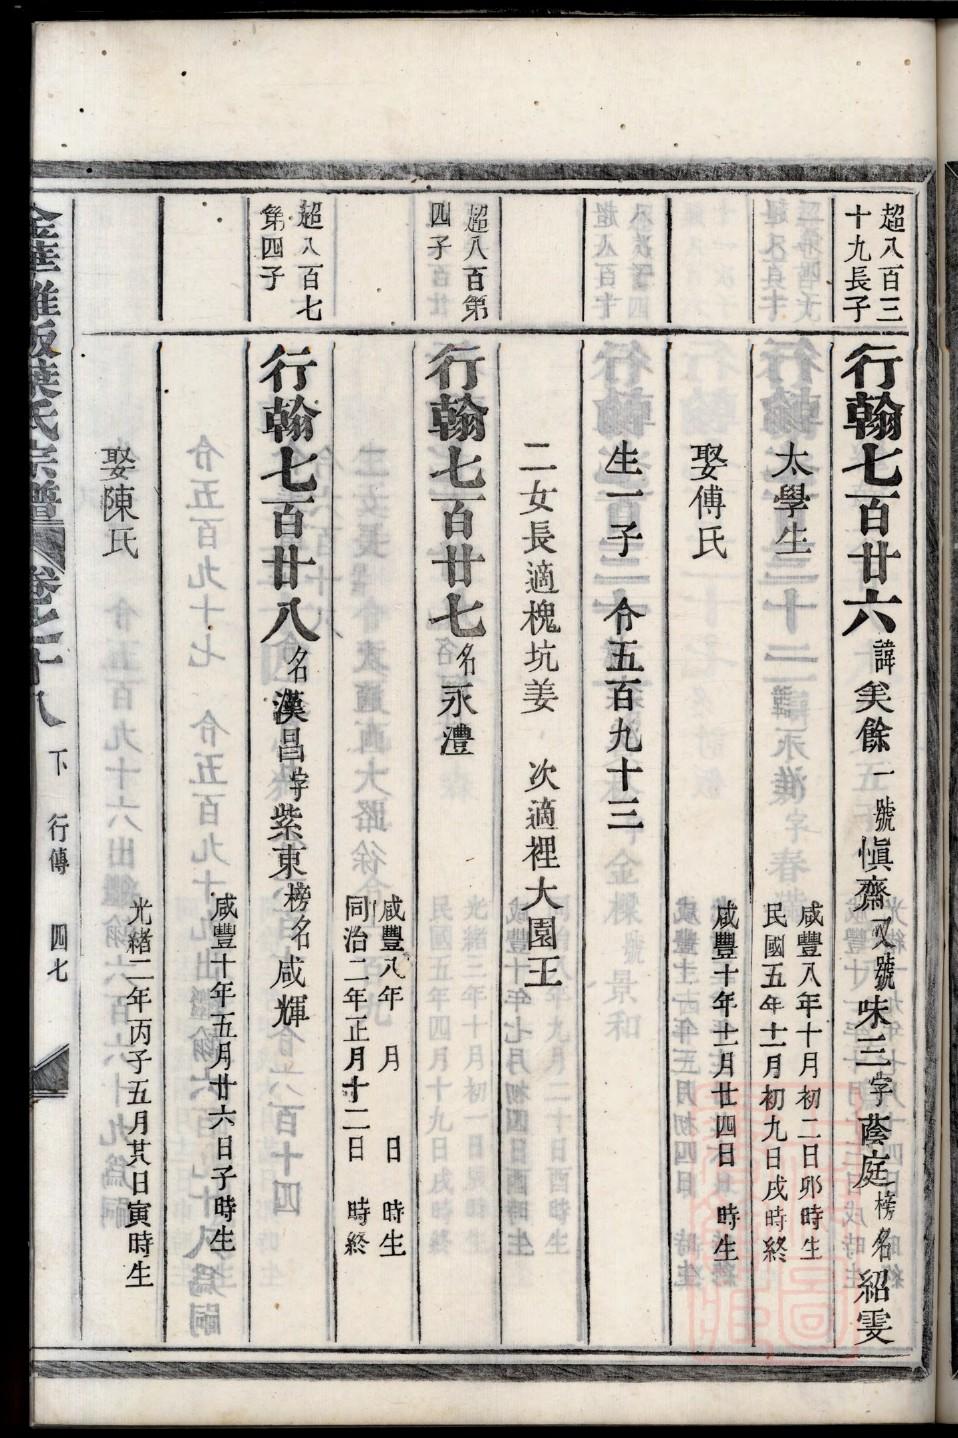 超八百三
十九長子
行翰七百廿六諱矣餘一號愼齋又號味三字蔭庭榜名紹雯
太學生
咸豐八年十月初二日卯時生
民國五年十一月初九日戌時終
娶傅氏
咸豐十年十一月廿四日 時生
生一子 令五百九十三
二女長適槐坑姜 次適裡大園王
超八百第
四子
行翰七百廿七名永澧
咸豐八年 月 日 時生
同治二年正月十二日 時終
超八百七
第四子
行翰七百廿八名漢昌字紫東榜名咸輝
咸豐十年五月廿六日子時生
娶陳氏
光緒二年丙子五月其日寅時生
葉氏宗譜 卷之十八 下 行傳 四七